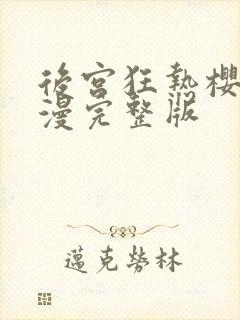 後宮狂熱櫻
漫完整版
邁克勞林